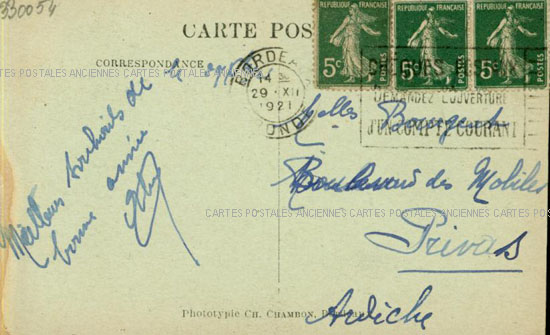 330054
CARTE POS
CORRESPONDANCE
RÉPUBLIQUE FRANÇAISE
5c POSTES
RÉPUBLIQUE FRANÇAISE
5c POSTES
RÉPUBLIQUE FRANÇAISE
5c POSTES
BORDEA
14
29 XII
1921
OND
DEMANDEZ L'OUVERTURE
D'UN COMPTE COURANT
CARTES POSTALES ANCIENNES CARTES POSTALES ANCIENNES CARTES POSTALES ANCIENNES CARTES POSTALES
Meilleurs souhaits de
bonne année
Melles
Boulevard des Mobiles
CARTES POSTALES ANCIENNES CARTES POSTALES ANCIENNES CARTES
Privas
Ardèche
Phototypie CH. CHAMBON, Bordeaux